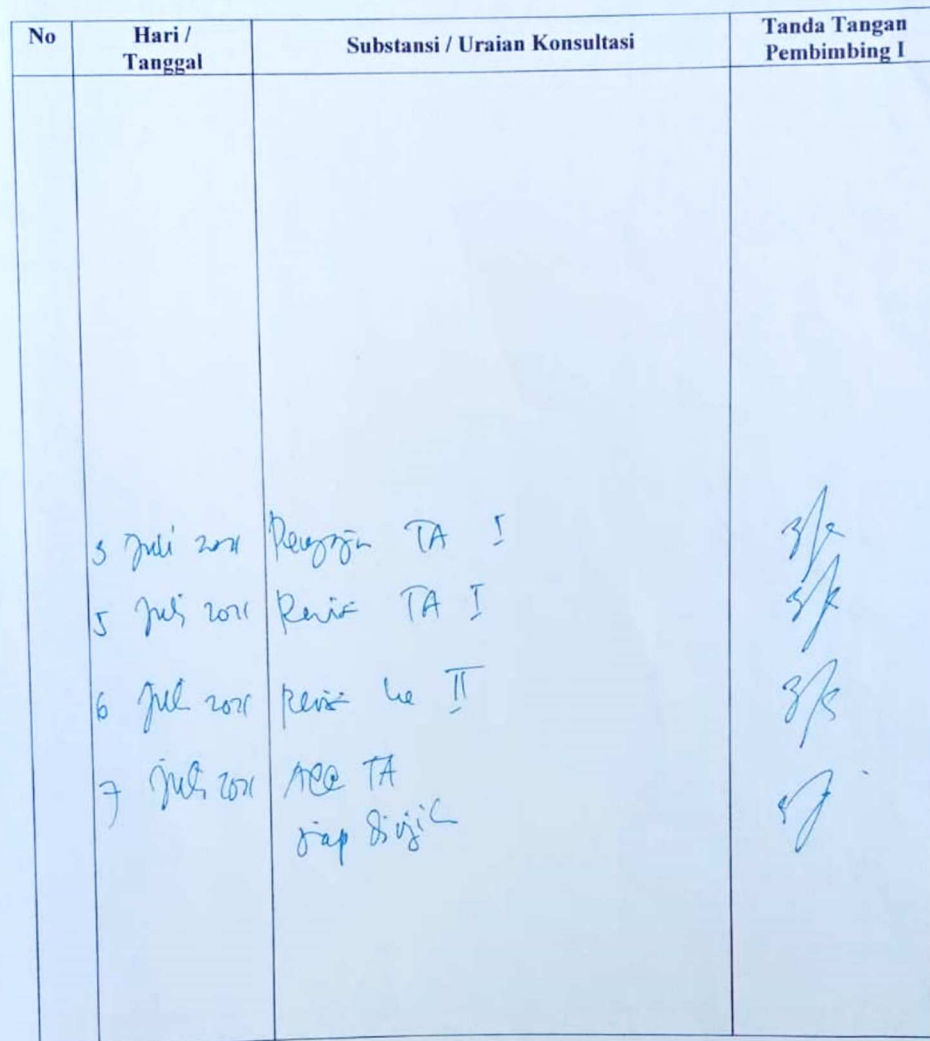 No
Hari /
Tanggal
Substansi / Uraian Konsultasi
Tanda Tangan
Pembimbing I
3 Juli 2021 TA I
5 Juli 2021 Revisi TA I
6 Juli 2021 Revisi ke II
7 Juli 2021 Acc TA
siap diuji